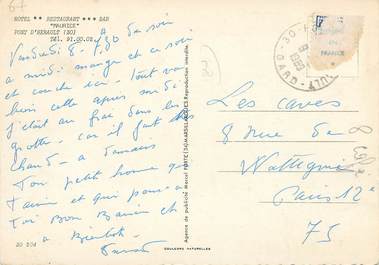 HOTEL ** RESTAURANT *** BAR
"MAURICE"
PONT D'HERAULT (30)
TÉL. 91.00.02.
Vendredi 8-7.80 Ce soir
a midi mangé et ce soir
et couche ici - Tout va
bien cette après midi
j'étai au frai dans les
grotte - car il fait
chaud - a demain
Ton petit homme qui
t'aime et qui pense a
Toi Bon Baiser et
a Bientot
20 204
COULEURS NATURELLES
Agence de publicité Marcel PORTE (30) MARSEILLARGUES Reproduction interdite.
30-
GARD
FRANCE
Les caves
8 Rue de
Wattignies
Paris 12e
75